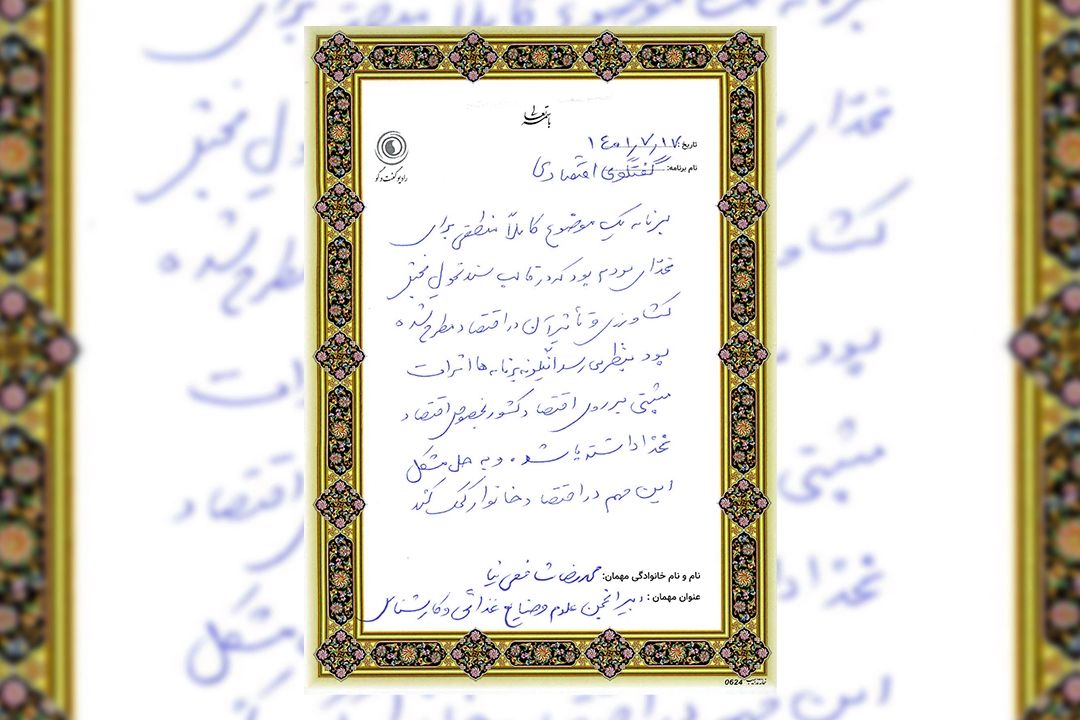 باسمه تعالی
رادیو گفت و گو
تاریخ: ۱۴۰۱٫۷٫۱۷
نام برنامه: گفتگوی اقتصادی
برنامه یک موضوع کاملاً منطقی برای
غذای مردم بود که در قالب سند تحول بخش
کشاورزی و تأثیر آن در اقتصاد مطرح شده
بود بنظر می رسد اینگونه برنامه ها اثرات
مثبتی بر روی اقتصاد کشور بخصوص اقتصاد
غذا داشته باشد و به حل مشکل
این مهم در اقتصاد خانوار کمک کند
نام و نام خانوادگی مهمان: محمدرضا شافعی نیا
عنوان مهمان: دبیر انجمن علوم و صنایع غذائی و کارشناس
0624